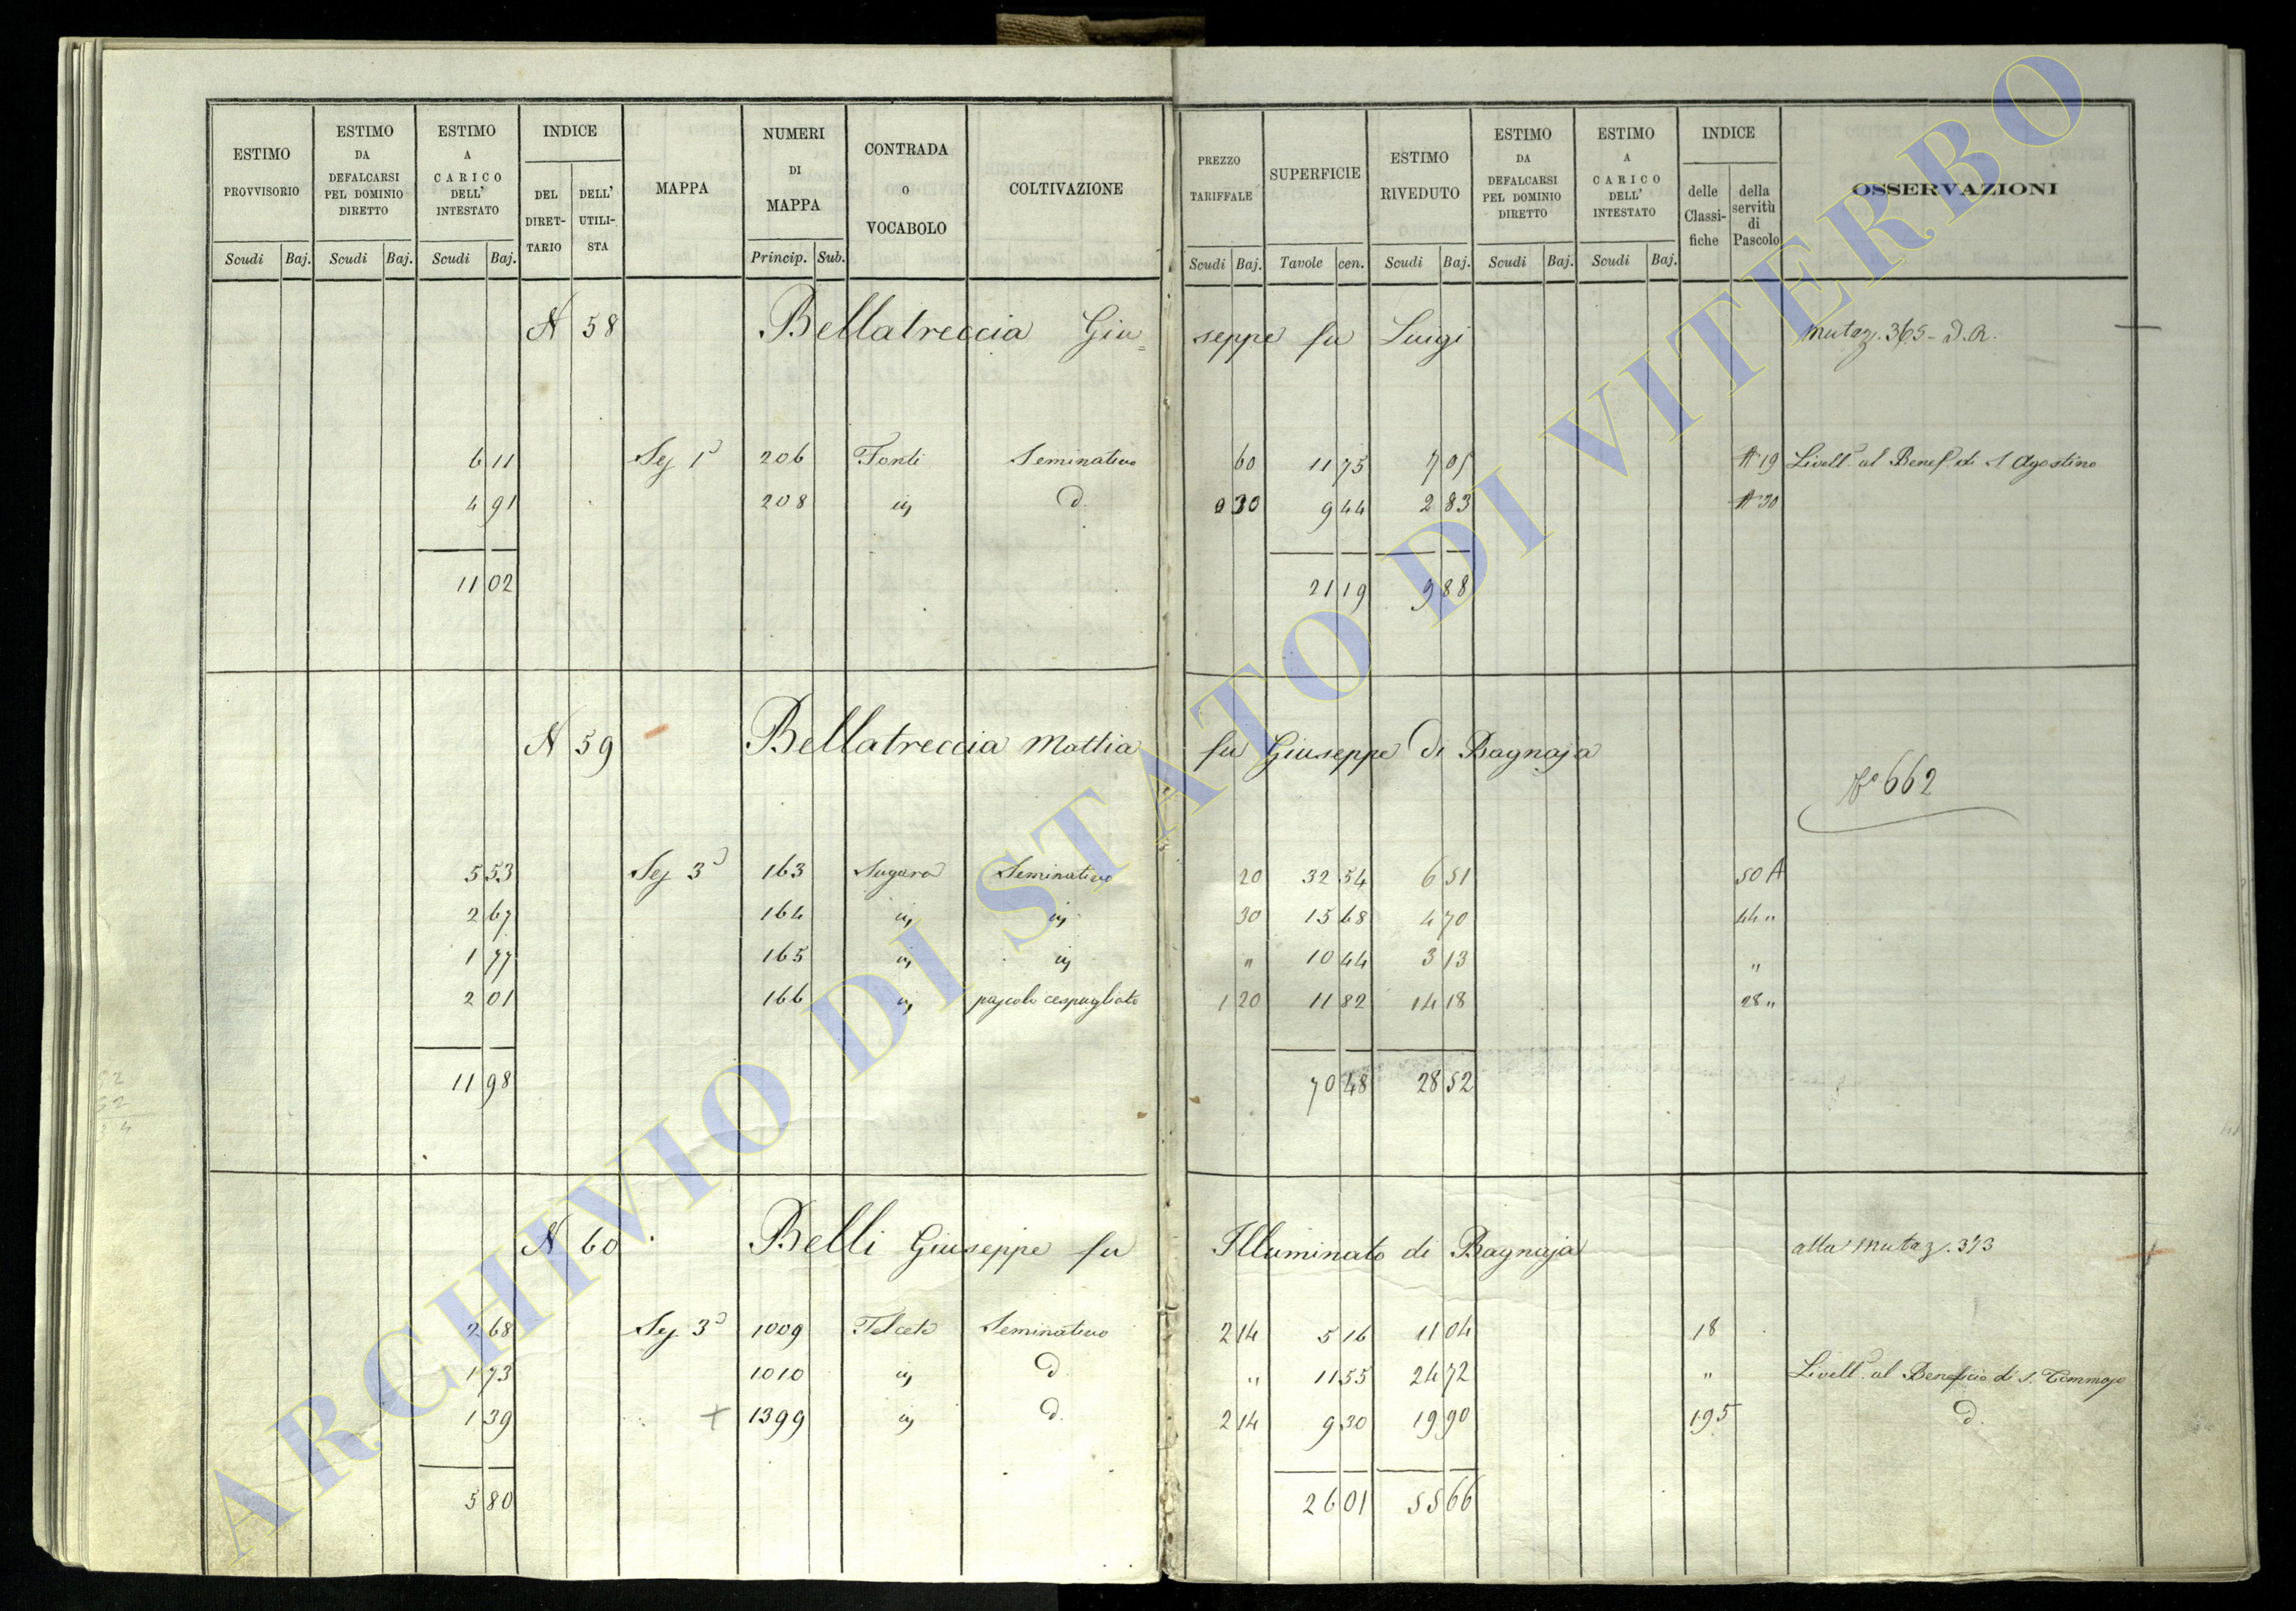 ESTIMO PROVVISORIO | ESTIMO DA DEFALCARSI PEL DOMINIO DIRETTO | ESTIMO A CARICO DELL' INTESTATO | INDICE | MAPPA | NUMERI DI MAPPA | CONTRADA O VOCABOLO | COLTIVAZIONE | PREZZO TARIFFALE | SUPERFICIE | ESTIMO RIVEDUTO | ESTIMO DA DEFALCARSI PEL DOMINIO DIRETTO | ESTIMO A CARICO DELL' INTESTATO | INDICE | OSSERVAZIONI
DEL DIRET-TARIO | DELL' UTILI-STA | delle Classi-fiche | della servitù di Pascolo
Scudi | Baj. | Scudi | Baj. | Scudi | Baj. | Princip. | Sub. | Scudi | Baj. | Tavole | cen. | Scudi | Baj. | Scudi | Baj. | Scudi | Baj.
N 58 Bellatreccia Giu= seppe fu Luigi mutaz. 365 - D.R.
6 11 | Sez 1ª | 206 | Fonti | Seminativo | 60 | 11 75 | 7 05 | A 19 | Livell. al Benef. di S. Agostino
4 91 | 208 | ivi | d. | 0 30 | 9 44 | 2 83 | A 30
11 02 | 21 19 | 9 88
N 59 Bellatreccia Mattia fu Giuseppe di Bagnaja
Nº 662
5 53 | Sez 3ª | 163 | Sugara | Seminativo | 20 | 32 54 | 6 51 | 50 A
2 67 | 164 | ivi | ivi | 30 | 15 68 | 4 70 | 44 "
1 77 | 165 | ivi | ivi | " | 10 44 | 3 13 | "
2 01 | 166 | ivi | pascolo cespugliato | 1 20 | 11 82 | 14 18 | 28 "
11 98 | 70 48 | 28 52
N 60 Belli Giuseppe fu Illuminato di Bagnaja alla mutaz. 373
2 68 | Sez 3ª | 1009 | Felceto | Seminativo | 2 14 | 5 16 | 11 04 | 18
1 73 | 1010 | ivi | d. | " | 11 55 | 24 72 | " | Livell. al Beneficio di S. Tommaso
1 39 | + | 1399 | ivi | d. | 2 14 | 9 30 | 19 90 | 195 | d.
5 80 | 26 01 | 55 66
ARCHIVIO DI STATO DI VITERBO